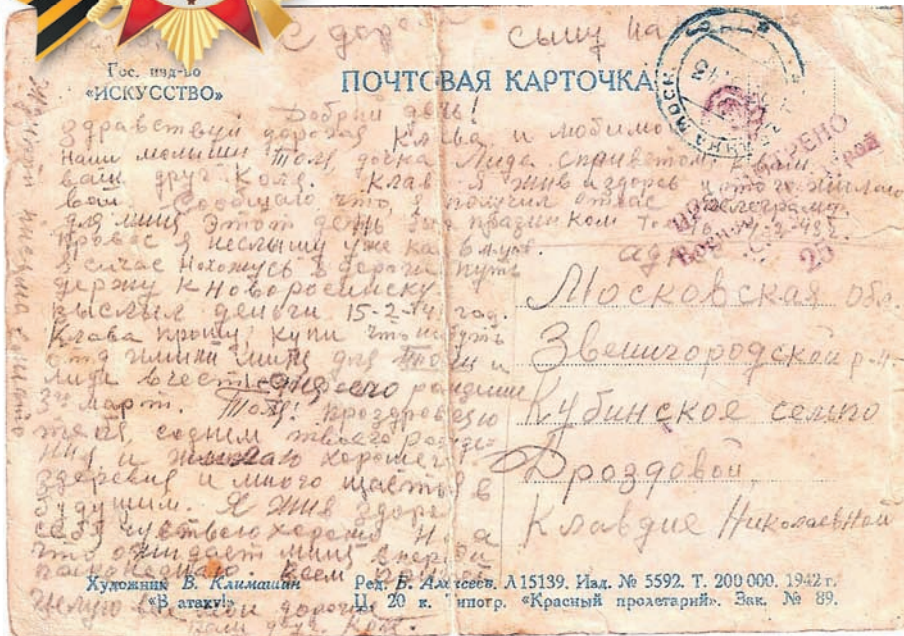 С доро сыну на
Гос. изд-во
«ИСКУССТВО»
ПОЧТОВАЯ КАРТОЧКА
Добрый день!
Здравствуй дорогая Клава, и любимо
наши малыши Толя, дочка Лида сприветом к вам
ваш друг Коля. Клав я жив издоров и того желаю
вам. Сообщаю что, я получил от вас телеграмму.
для миня этот день был праздником
провас я неслышу уже
я сичас нохожусь в дороги путь
держу к Новоросийску
выслал деньги 15-2-
Клава прошу, купи что нибудь
от имини миня для Толи и
Лиди вчесть
3го март. Толя! проздровляю
тебя, соднем твоего рожде
ния и желаю хорошего
здоровия и много щастья в
будущим. Я жив здоро
себя чувствую хорошо. Н
что ожидает миня впереди
Целую вас мои дорогие
ваш друг. Коля.
адрес
Московская обл.
Звенигородской р-н
Кубинское селпо
Дроздовой
Клавдие Николаевной
ПРОСМОТРЕНО
Военной Цензурой
25
Художник В. Климашин
«В атаку!»
Ред. Б. Алексеев. А15139. Изд. № 5592. Т. 200 000. 1942 г.
Ц. 20 к. Типогр. «Красный пролетарий». Зак. № 89.